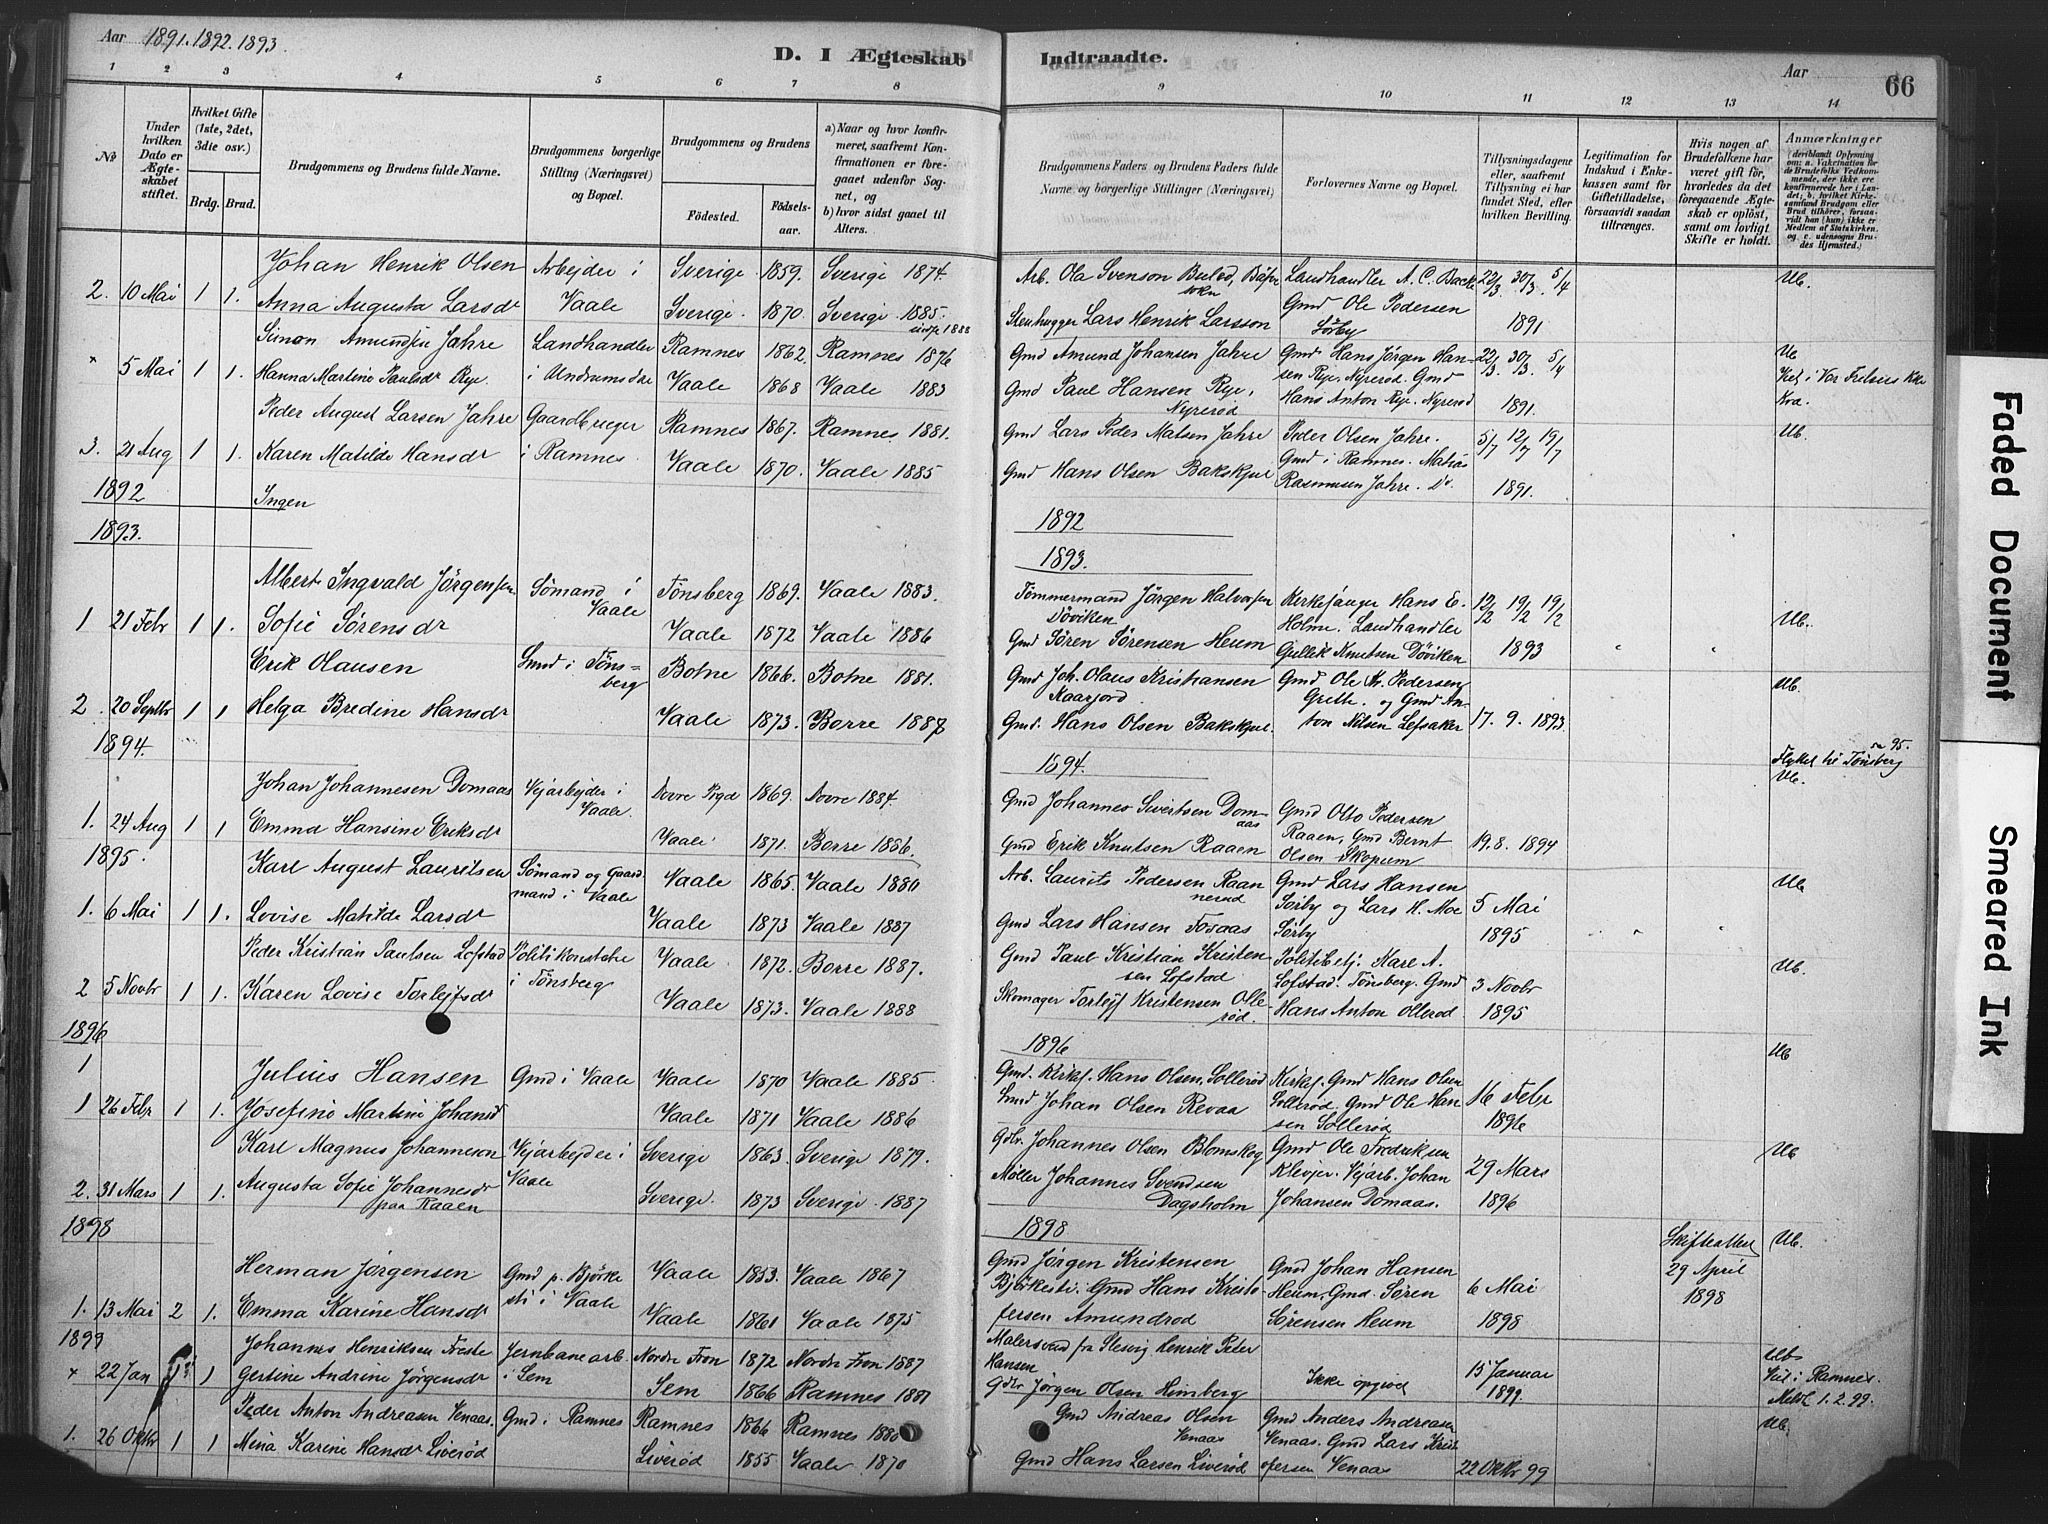 Aar 1891. 1892. 1893.
D. I Ægteskab Indtraadte.
Aar
66
1 2 3 4 5 6 7 8 9 10 11 12 13 14
No
Under hvilken Dato er Ægteskabet stiftet.
Hvilket Gifte (1ste, 2det, 3die osv.)
Brdg. Brud.
Brudgommens og Brudens fulde Navne.
Brudgommens borgerlige Stilling (Næringsvei) og Bopæl.
Brudgommens og Brudens
Fødested.
Fødselsaar.
a) Naar og hvor konfirmeret, saafremt Konfirmationen er foregaaet udenfor Sognet, og
b) hvor sidst gaaet til Alters.
Brudgommens Faders og Brudens Faders fulde Navne og borgerlige Stillinger (Næringsvei)
Forlovernes Navne og Bopæl.
Tillysningsdagene eller, saafremt Tillysning ei har fundet Sted, efter hvilken Bevilling.
Legitimation for Indskud i Enkekassen samt for Giftetilladelse, forsaavidt saadan tiltrænges.
Hvis nogen af Brudefolkene har været gift før, hvorledes da det foregaaende Ægteskab er opløst, samt om lovligt Skifte er holdt.
Anmærkninger
Johan Henrik Olsen Arbejder i Sverige 1859. Sverige 1874 Arb. Ola Svenson Landhandler A. C. Backe 22/3 30/3 5/4 Ub.
2. 10 Mai 1 1. Anna Augusta Larsdr Vaale Sverige 1870. Sverige 1885. Stenhugger Lars Henrik Larsson Gmd Ole Pedersen Sørby 1891
Simon Amundsen Jahre Landhandler Ramnes 1862. Ramnes 1876 Gmd Amund Johansen Jahre Gmd Hans Jørgen Han- 22/3 30/3 5/4 Ub
" 5 Mai 1 1. Hanna Martine Paulsdr Rye. i Undrumsdal Vaale 1868 Vaale 1883 Gmd Paul Hansen Rye, Nyrerød sen Rye, Nyrerød. Gmd Hans Anton Rye. Nyrerød 1891. Viet i Vor Frelsers Kke Kra.
Peder August Larsen Jahre Gaardbruger Ramnes 1867. Ramnes 1881. Gmd Lars Peder Matsen Jahre Peder Olsen Jahre. 5/7 12/7 19/7 Ub.
3. 21 Aug 1 1. Karen Matilde Hansdr i Ramnes. Vaale 1870. Vaale 1885 Gmd Hans Olsen Bakskjul Gmd i Ramnes. Mathias Rasmusen Jahre. Do. 1891.
1892 Ingen 1892
1893. 1893.
Albert Ingvald Jørgensen Sømand i Vaale Tønsberg 1869. Vaale 1883. Tømmermand Jørgen Halvorsen Døviken Kirkesanger Hans E. 12/2 19/2 19/2
1 21 Febr 1 1. Sofie Sørensdr Vaale 1872 Vaale 1886 Gmd Søren Sørensen Heum Holme. Landhandler Gullik Knutsen Døviken 1893 " " Ub.
Erik Olausen Smed i Tønsberg Botne 1866. Botne 1881. Gmd Joh. Olaus Kristiansen Kaarjord Gmd Ole Kr. Pedersen Ub.
2 20 Septbr 1 1 Helga Bredine Hansdr Vaale 1873. Borre 1887 Gmd. Hans Olsen Bakskjul. Grette. og Gmd Anton Nilsen Lefsaker 17. 9. 1893.
1894. 1894. Flyttet til Tønsberg 95.
Johan Johannesen Domaas Vejarbejder i Vaale Dovre Pgd 1869. Dovre 1884. Gmd Johannes Sivertsen Domaas Gmd Otto Pedersen Ub.
1. 24 Aug 1 1 Emma Hansine Eriksdr Vaale 1871. Borre 1886. Gmd Erik Knutsen Raaen Raaen, Gmd Bernt Olsen Skopum 19. 8. 1894
1895.
Karl August Lauritsen Sømand og Gaardmand i Vaale Vaale 1865. Vaale 1880 Arb. Laurits Pedersen Raannerud Gmd Lars Hansen Ub
1. 6 Mai 1 1. Lovise Matilde Larsdr Vaale 1873 Vaale 1887 Gmd Lars Hansen Fosaas Sørby og Lars H. Moe Sørby 5 Mai 1895 " "
Peder Kristian Paulsen Lofstad Politikonstabe i Tønsberg Vaale 1872. Borre 1887. Gmd Paul Kristian Kristensen Lofstad Politibetj. Karl A. Ub.
2 5 Novbr 1 1. Karen Lovise Torlejfsdr Vaale 1873. Vaale 1888 Skomager Torlejf Kristensen Ollerød. Lofstad. Tønsberg. Gmd Hans Anton Ollerød 3 Novbr 1895
1896 1896
1
Julius Hansen Gmd i Vaale Vaale 1870 Vaale 1885. Gmd. Kirkes. Hans Olsen, Sollerød Kirkes. Gmd Hans Olsen Ub
1 26 Febr 1 1. Josefine Martine Johansd Vaale 1871 Vaale 1886 Gmd Johan Olsen Revaa Sollerød. Gmd Ole Hansen Sollerød 16 Febr 1896
Karl Magnus Johanneson Vejarbejder i Vaale Sverige 1863. Sverige 1879. Gdbr. Johannes Olsen Blomskog Gmd Ole Fredriksen Ub
2. 31 Mars 1 1. Augusta Sofie Johannesdr paa Raaen Sverige. 1873 Sverige. 1887 Møller Johannes Svendsen Dagsholm Klevjer. Vejarb. Johan Johansen Domaas. 29 Mars 1896
1898 1898
Herman Jørgensen Gmd p. Bjørkesti i Vaale Vaale 1853. Vaale 1867 Gmd Jørgen Kristensen Bjørkesti. Gmd Johan Hansen Skifteattest 29 April 1898 Ub.
1. 13 Mai 2 1. Emma Karine Hansdr Vaale 1861 Vaale 1875 Gmd Hans Kristofersen Amundrød Heum. Gmd. Søren Sørensen Heum 6 Mai 1898
1899
Johannes Henriksen Freste Jernbanearb. i Sem Nordre Fron 1872 Nordre Fron 1887 Malersvend fra Slesvig Henrik Peter Hansen Ub
× 22 Jan 1 Gertine Andrine Jørgensdr Sem 1866 Ramnes 1881 Gdbr Jørgen Olsen Himberg Ikke opgivet 15 Januar 1899. Viet i Ramnes. 1. 2. 99.
Peder Anton Andreasen Venaas. Gmd i Ramnes Ramnes 1866 Ramnes 1880 Gmd Andreas Olsen Venaas Gmd Anders Andreasen Ub.
1. 26 Oktbr 1 1 Mina Karine Hansdr Liverød Liverød 1855 Vaale 1870 Gmd Hans Larsen Liverød Venaas. Gmd Lars Kristofersen Venaas 22 Oktbr 99
Faded Document
Smeared Ink